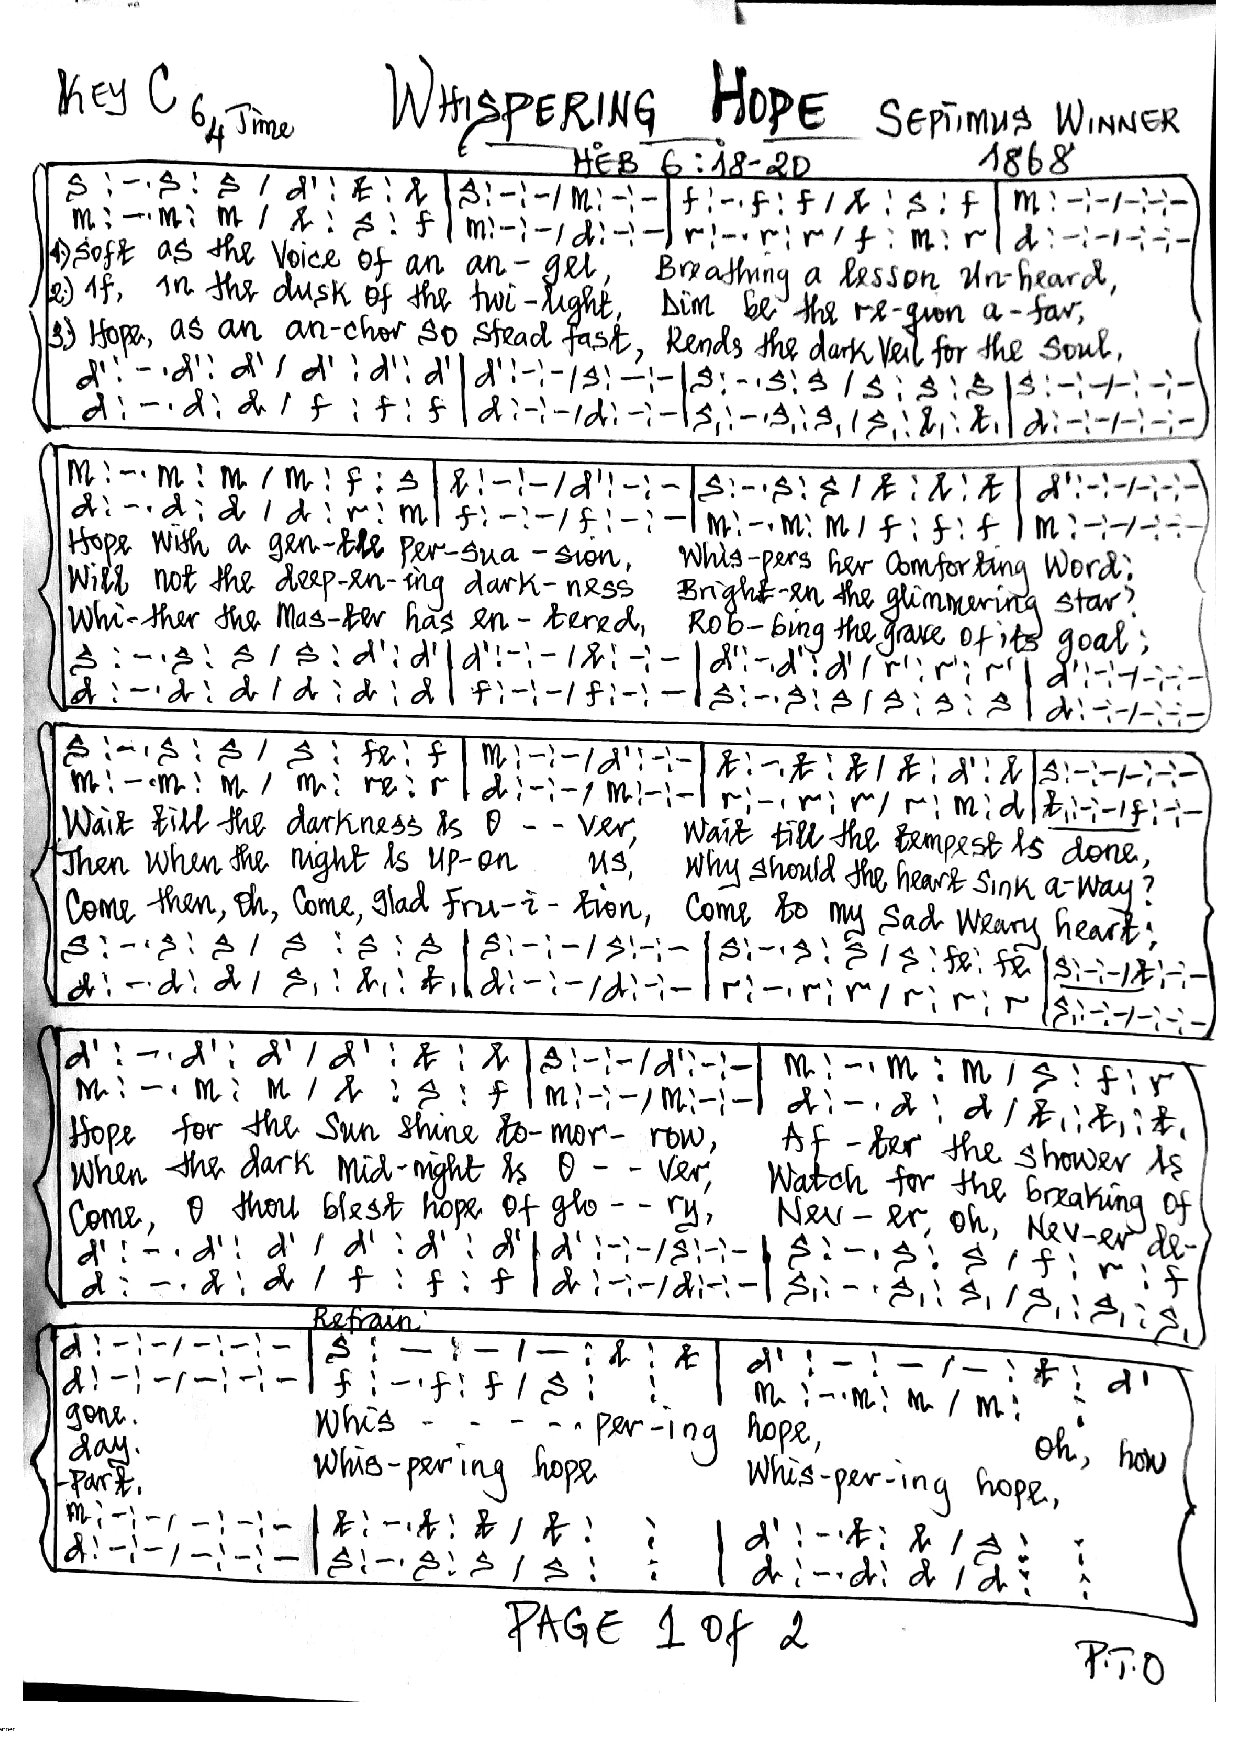 KEY C 6/4 Time WHISPERING HOPE SEPTIMUS WINNER
HEB 6:18-20 1868
s : - . s : s / d' : t : l | s : - : - / m : - : - | f : - . f : f / l : s : f | m : - : - / - : - : -
m : - . m : m / l : s : f | m : - : - / d : - : - | r : - . r : r / f : m : r | d : - : - / - : - : -
1) Soft as the Voice of an an-gel, Breathing a lesson Un-heard,
2) If, in the dusk of the twi-light, Dim be the re-gion a-far,
3) Hope, as an an-chor so stead fast, Rends the dark Veil for the Soul,
d' : - . d' : d' / d' : d' : d' | d' : - : - / s : - : - | s : - . s : s / s : s : s | s : - : - / - : - : -
d : - . d : d / f : f : f | d : - : - / d : - : - | s₁ : - . s₁ : s₁ / s₁ : l₁ : t₁ | d : - : - / - : - : -
m : - . m : m / m : f : s | l : - : - / d' : - : - | s : - . s : s / t : l : t | d' : - : - / - : - : -
d : - . d : d / d : r : m | f : - : - / f : - : - | m : - . m : m / f : f : f | m : - : - / - : - : -
Hope with a gen-tle Per-sua-sion, Whis-pers her Comforting Word;
Will not the deep-en-ing dark-ness Bright-en the glimmering star?
Whi-ther the Mas-ter has en-tered, Rob-bing the grave of its goal;
s : - . s : s / s : d' : d' | d' : - : - / l : - : - | d' : - . d' : d' / r' : r' : r' | d' : - : - / - : - : -
d : - . d : d / d : d : d | f : - : - / f : - : - | s : - . s : s / s : s : s | d : - : - / - : - : -
s : - . s : s / s : fe : f | m : - : - / d' : - : - | t : - . t : t / t : d' : l | s : - : - / - : - : -
m : - . m : m / m : re : r | d : - : - / m : - : - | r : - . r : r / r : m : d | t₁ : - : - / f : - : -
Wait till the darkness is O - - ver, Wait till the tempest is done,
Then when the night is up-on us, Why should the heart sink a-way?
Come then, oh, Come, glad Fru-i-tion, Come to my sad weary heart;
s : - . s : s / s : s : s | s : - : - / s : - : - | s : - . s : s / s : fe : fe | s : - : - / t : - : -
d : - . d : d / s₁ : l₁ : t₁ | d : - : - / d : - : - | r : - . r : r / r : r : r | s₁ : - : - / - : - : -
d' : - . d' : d' / d' : t : l | s : - : - / d' : - : - | m : - . m : m / s : f : r
m : - . m : m / l : s : f | m : - : - / m : - : - | d : - . d : d / t₁ : t₁ : t₁
Hope for the Sun shine to-mor-row, Af-ter the shower is
When the dark Mid-night is O - - ver, Watch for the breaking of
Come, O thou blest hope of glo - - ry, Nev-er, oh, Nev-er de-
d' : - . d' : d' / d' : d' : d' | d' : - : - / s : - : - | s : - . s : s / f : r : f
d : - . d : d / f : f : f | d : - : - / d : - : - | s₁ : - . s₁ : s₁ / s₁ : s₁ : s₁
Refrain:
d : - : - / - : - : - | s : - : - / - : l : t | d' : - : - / - : t : d'
d : - : - / - : - : - | f : - . f : f / s : : | m : - . m : m / m : :
gone. Whis - - - - - per-ing hope, oh, how
day. Whis-per ing hope Whis-per-ing hope,
-Part.
m : - : - / - : - : - | t : - . t : t / t : : | d' : - . t : l / s : :
d : - : - / - : - : - | s : - . s : s / s : : | d : - . d : d / d : :
PAGE 1 OF 2
P.T.O